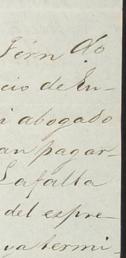 Fern do
cio de En-
i abogado
an pagar-
Lafalla
del espre-
va termi-